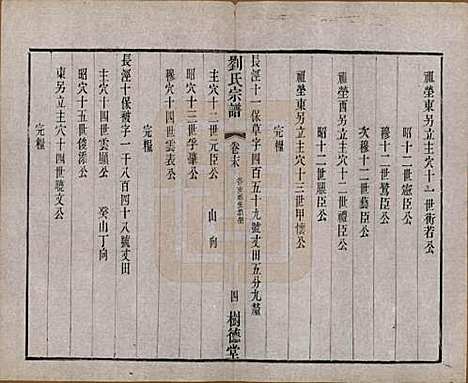 祖塋東另立主穴十一世衔若公
昭十二世憲臣公
次穆十二世鷺臣公
祖塋酉另立主穴十二世禮臣公
昭十二世驥臣公
祖塋東另立主穴十三世甲懷公
完糧
長涇十一保草字四百五十九號丈田五分九釐
劉氏宗譜
卷末
四
樹德堂
主穴十二世元臣公 山向
昭穴十三世學謙公
穆穴十四世雲表公
長涇十保被字一千八百四十八號丈田
完糧
主穴十四世雲顯公 癸山丁向
昭穴十五世俊添公
東另立主穴十四世聽文公
完糧